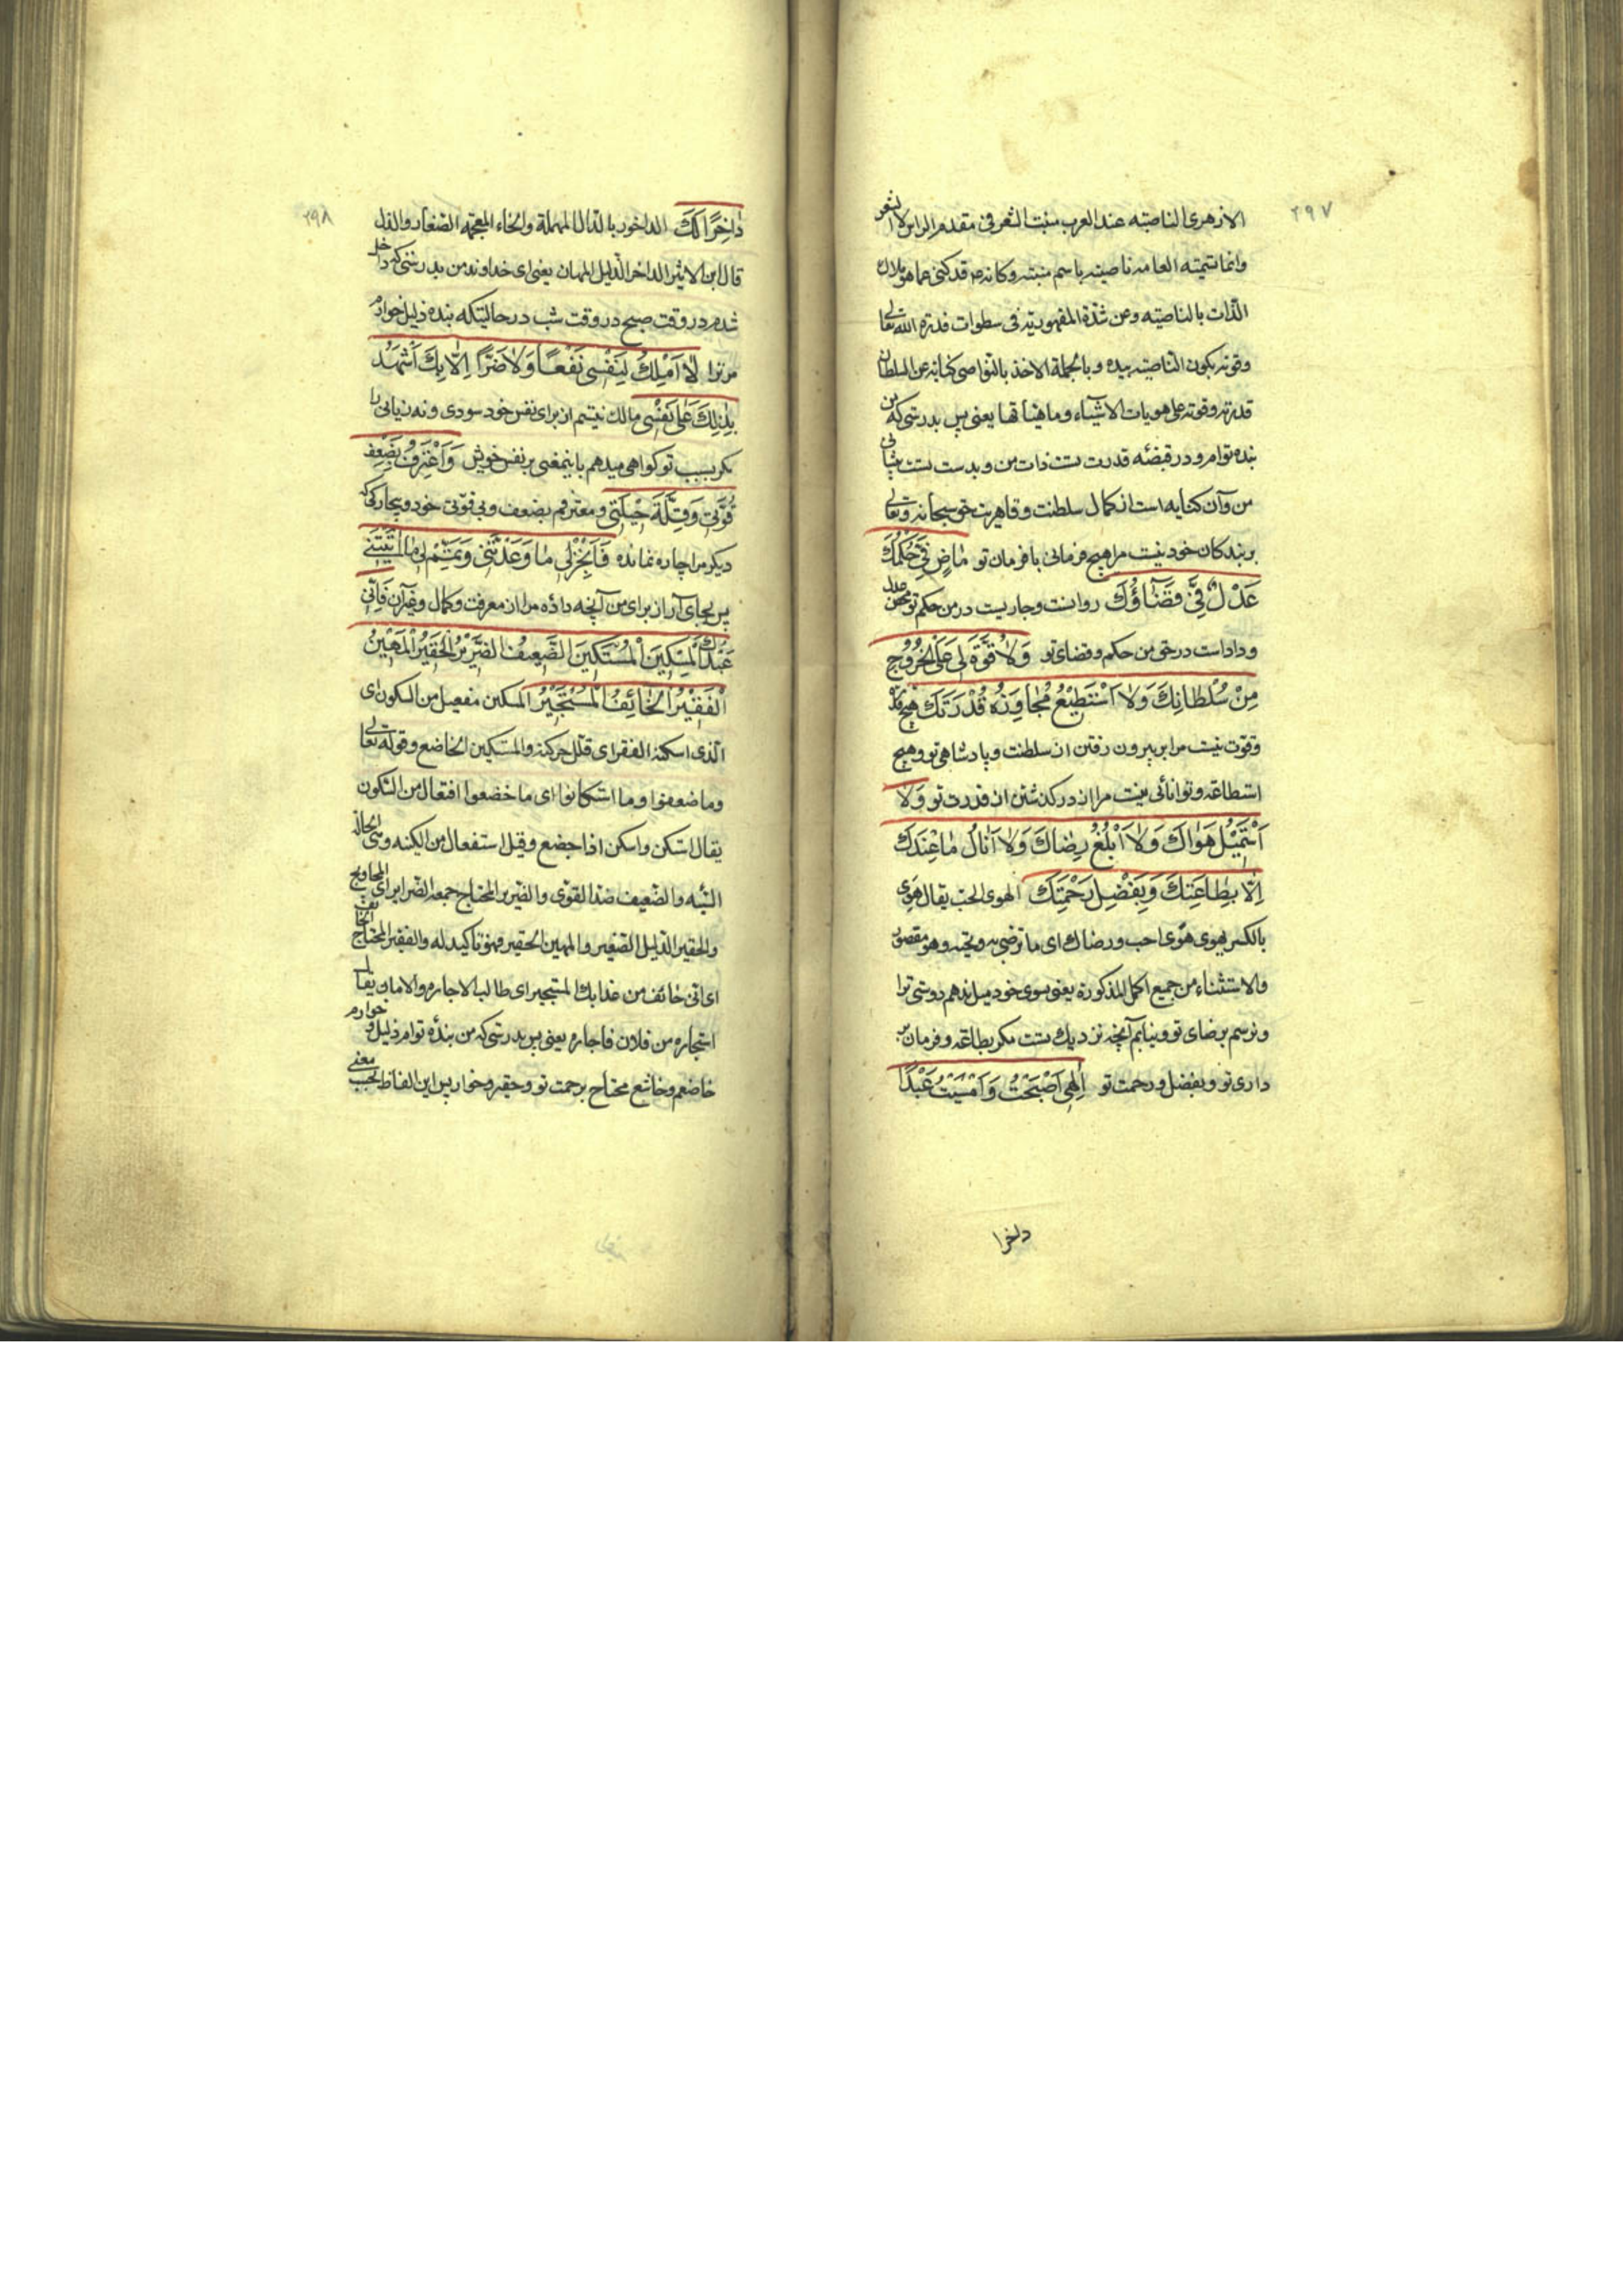 ۲۹۷
الازهری الناصیته عند العرب منبت الشعر فی مقدم الراس لا الشعر
وانما تسمیته العامه ناصیته باسم منبته وکانه قد کنی عما هو ملاک
الذات بالناصیته وعن شدة المقهوریته فی سطوات قدرة الله تعالی
وقوته بکون الناصیته بیده وبالجملة الاخذ بالنواصی کنایه عن السلطان
قدرته وقوته علی هویات الاشیاء وماهیاتها یعنی پس بدرستی که من
بنده توام و در قبضه قدرت تست ذات من و بدست تست پیشانی
من وآن کنایه است از کمال سلطنت و قاهریت حق سبحانه وتعالی
بر بندکان خود نیست مرا هیچ فرمانی با فرمان تو مٰاضٍ فِیَّ حُکْمُكَ
عَدْلٌ فِیَّ قَضٰاؤُكَ روانست وجاریست در من حکم تو محض عدل
وداد است در حق من حکم وقضای تو وَلاٰ قُوَّةَ لِی عَلَی الْخُرُوجِ
مِنْ سُلْطٰانِكَ وَلاٰ اَسْتَطِیْعُ مُجٰاوَزَةَ قُدْرَتِكَ هیچ
وقوت نیست مرا بر بیرون رفتن از سلطنت و پادشاهی تو وهیچ
استطاعة وتوانائی نیست مرا از در کذشتن از قدرت تو وَلاٰ
اَسْتَمِیْلُ هَوٰاكَ وَلاٰ اَبْلُغُ رِضٰاكَ وَلاٰ اَنٰالُ مٰاعِنْدَكَ
اِلّاٰ بِطٰاعَتِكَ وَبِفَضْلِ رَحْمَتِكَ الهوی الحب یقال هَوِی
بالکسر یهوی هوًی احب ورضاك ای ما ترضی به وتحبه وهو مقصور
والاستثناء من جمیع الجمل المذکورة یعنی بسوی خود میل ندهم دوستی ترا
ونرسم برضای تو ونیابم آنچه نزدیك تست مکر بطاعة وفرمان بر
داری تو وبفضل ورحمت تو اِلٰهِی اَصْبَحْتُ وَاَمْسَیْتُ عَبْدًا
داخرا
۲۹۸
دٰاخِرًا لَكَ الداخور بالدال المهملة والخاء المعجمه الصغار والذل
قال ابن الاثیر الداخر الذلیل المهان یعنی ای خداوند من بدرستی که داخل
شدم در وقت صبح در وقت شب در حالتیکه بنده ذلیل خوارم
مر ترا لاٰ اَمْلِكُ لِنَفْسِی نَفْعًا وَلاٰ ضَرًّا اِلّاٰ بِكَ اَشْهَدُ
بِذٰلِكَ عَلٰی نَفْسِی مالك نیستم از برای نفس خود سودی ونه زیانی را
مکر بسبب تو کواهی میدهم باینمعنی بر نفس خویش وَاَعْتَرِفُ بِضَعْفِ
قُوَّتِی وَقِلَّةِ حِیْلَتِی ومعترفم بضعف وبی قوتی خود وبیچارکی که
دیکر مرا چاره نمانده فَاَنْجِزْ لِی مٰا وَعَدْتَنِی وَتَمِّمْ لِی مٰا اٰتَیْتَنِی
پس بجای آر از برای من آنچه داده مرا از معرفت وکمال وغیر آن فَاِنِّی
عَبْدُكَ الْمِسْکِیْنُ الْمُسْتَکِیْنُ الضَّعِیْفُ الضَّرِیْرُ الْحَقِیْرُ الْمَهِیْنُ
الْفَقِیْرُ الْخٰائِفُ الْمُسْتَجِیْرُ المسکین مفعیل من السکون ای
الذی اسکنه الفقر ای قلل حرکته والمستکین الخاضع وقوله تعالی
وما ضعفوا وما استکانوا ای ما خضعوا افتعال من السکون
یقال استکن واسکن اذا خضع وقیل استفعال من الکینه وهی الحالة
السیئه والضعیف ضد القوی والضریر المحتاج جمعه الضرایر ای المحاویج
والحقیر الذلیل الصغیر والمهین الحقیر فهو تاکید له والفقیر المحتاج الخائف
ای انی خائف من عذابك المستجیر ای طالب الاجاره والامان یقال
استجاره من فلان فاجاره یعنی پس بدرستی که من بنده توام ذلیل وخوارم
خاضعم وخاشع محتاج برحمت تو وحقیر وخوار پس این الفاظ بحسب معنی